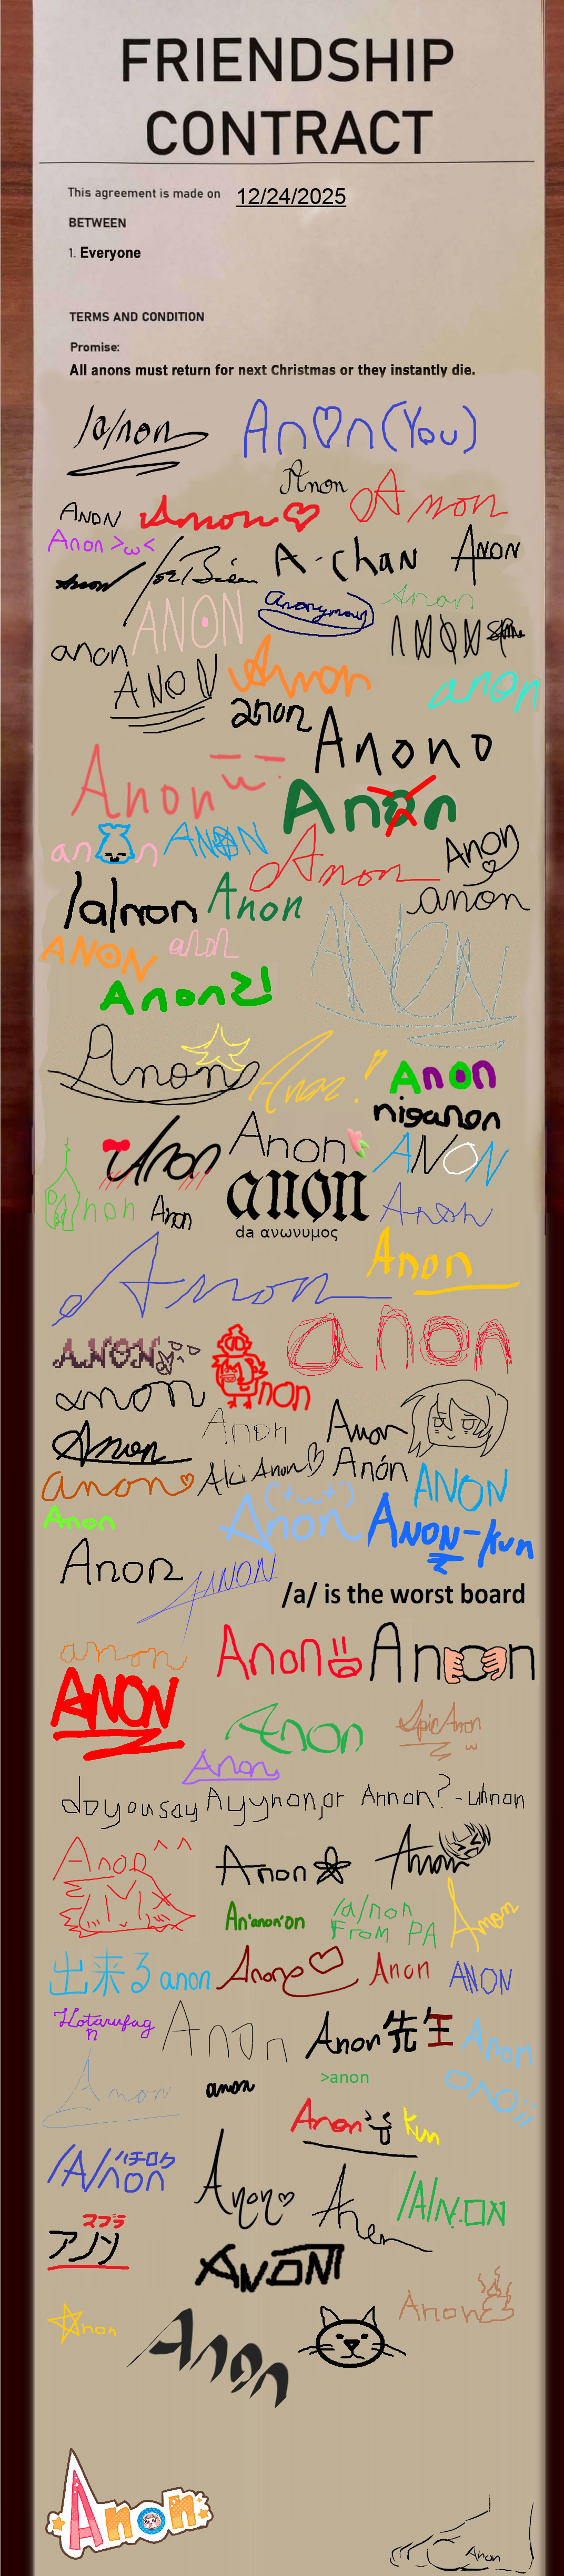 FRIENDSHIP
CONTRACT
This agreement is made on 12/24/2025
BETWEEN
1. Everyone
TERMS AND CONDITION
Promise:
All anons must return for next Christmas or they instantly die.
/a/non
An♡n (You)
Anon
Anon
Anon♡
Anon
Anon >ω<
Anon
Joe Biden
A-chan
Anon
ANON
Anonymous
Anon
anon
ANON
ANON
Anon
anon
anon
Anono
Anon
Anon
an n
ANON
Anon
Anon
/a/non
Anon
anon
ANON
anon
Anon2!
ANON
Anon
Anon!!
Anon
niganon
Anon
Anon
ANON
anon
Anon
anon
da ανωνυμος
Anon
Anon
Anon
ANON
non
anon
anon
Anon
Anon
Anon
anon♡
Aki Anon♡
Anón
ANON
Anon
Anon
('+ω+')
Anon-kun
Anon
ANON
/a/ is the worst board
anon
Anon
Anon
ANON
Anon
Epic Anon
ω
Anon
do you say Ayynon, or Annon? - uhnon
Anon^^
Anon
Anon
An'anon'on
/a/non
From PA
Anon
出来る anon
Anon
Anon
ANON
Hotarufag
n
Anon
Anon先生
Anon
Anon
anon
>anon
Anon
kun
/A/non
ハチロク
Anon♡
Anon
/A/N.ON
スプラ
アノン
ANON
Anon
Anon
Anon
Anon
Anon